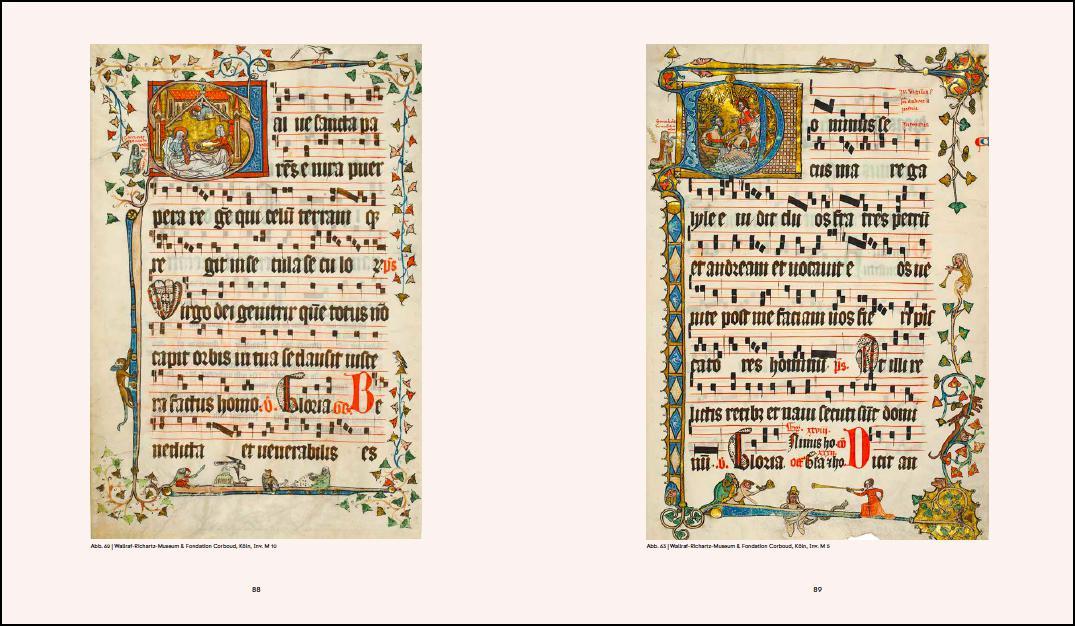 al ue sancta pa
rēs enixa puer
pera re ge qui celū terram q;
re git in se cula se cu lo rꝝ p̄s
Virgo dei genitrix quē totus nō
capit orbis in tua se clausit uisce
ra factus homo. v̄. Gloria Be
nedicta et uenerabilis es
Abb. 62 | Wallraf-Richartz-Museum & Fondation Corboud, Köln, Inv. M 10
88
Do minus se
cus ma re ga
lyle e ui dit du os fra tres petrū
et andream et uocauit e os ue
nite post me faciam uos fie ri pis
cato res hominū p̄s. At illi re
lictis retibꝫ et naui secuti sūt domi
nū. v̄. Gloria Dicit an
Abb. 63 | Wallraf-Richartz-Museum & Fondation Corboud, Köln, Inv. M 5
89